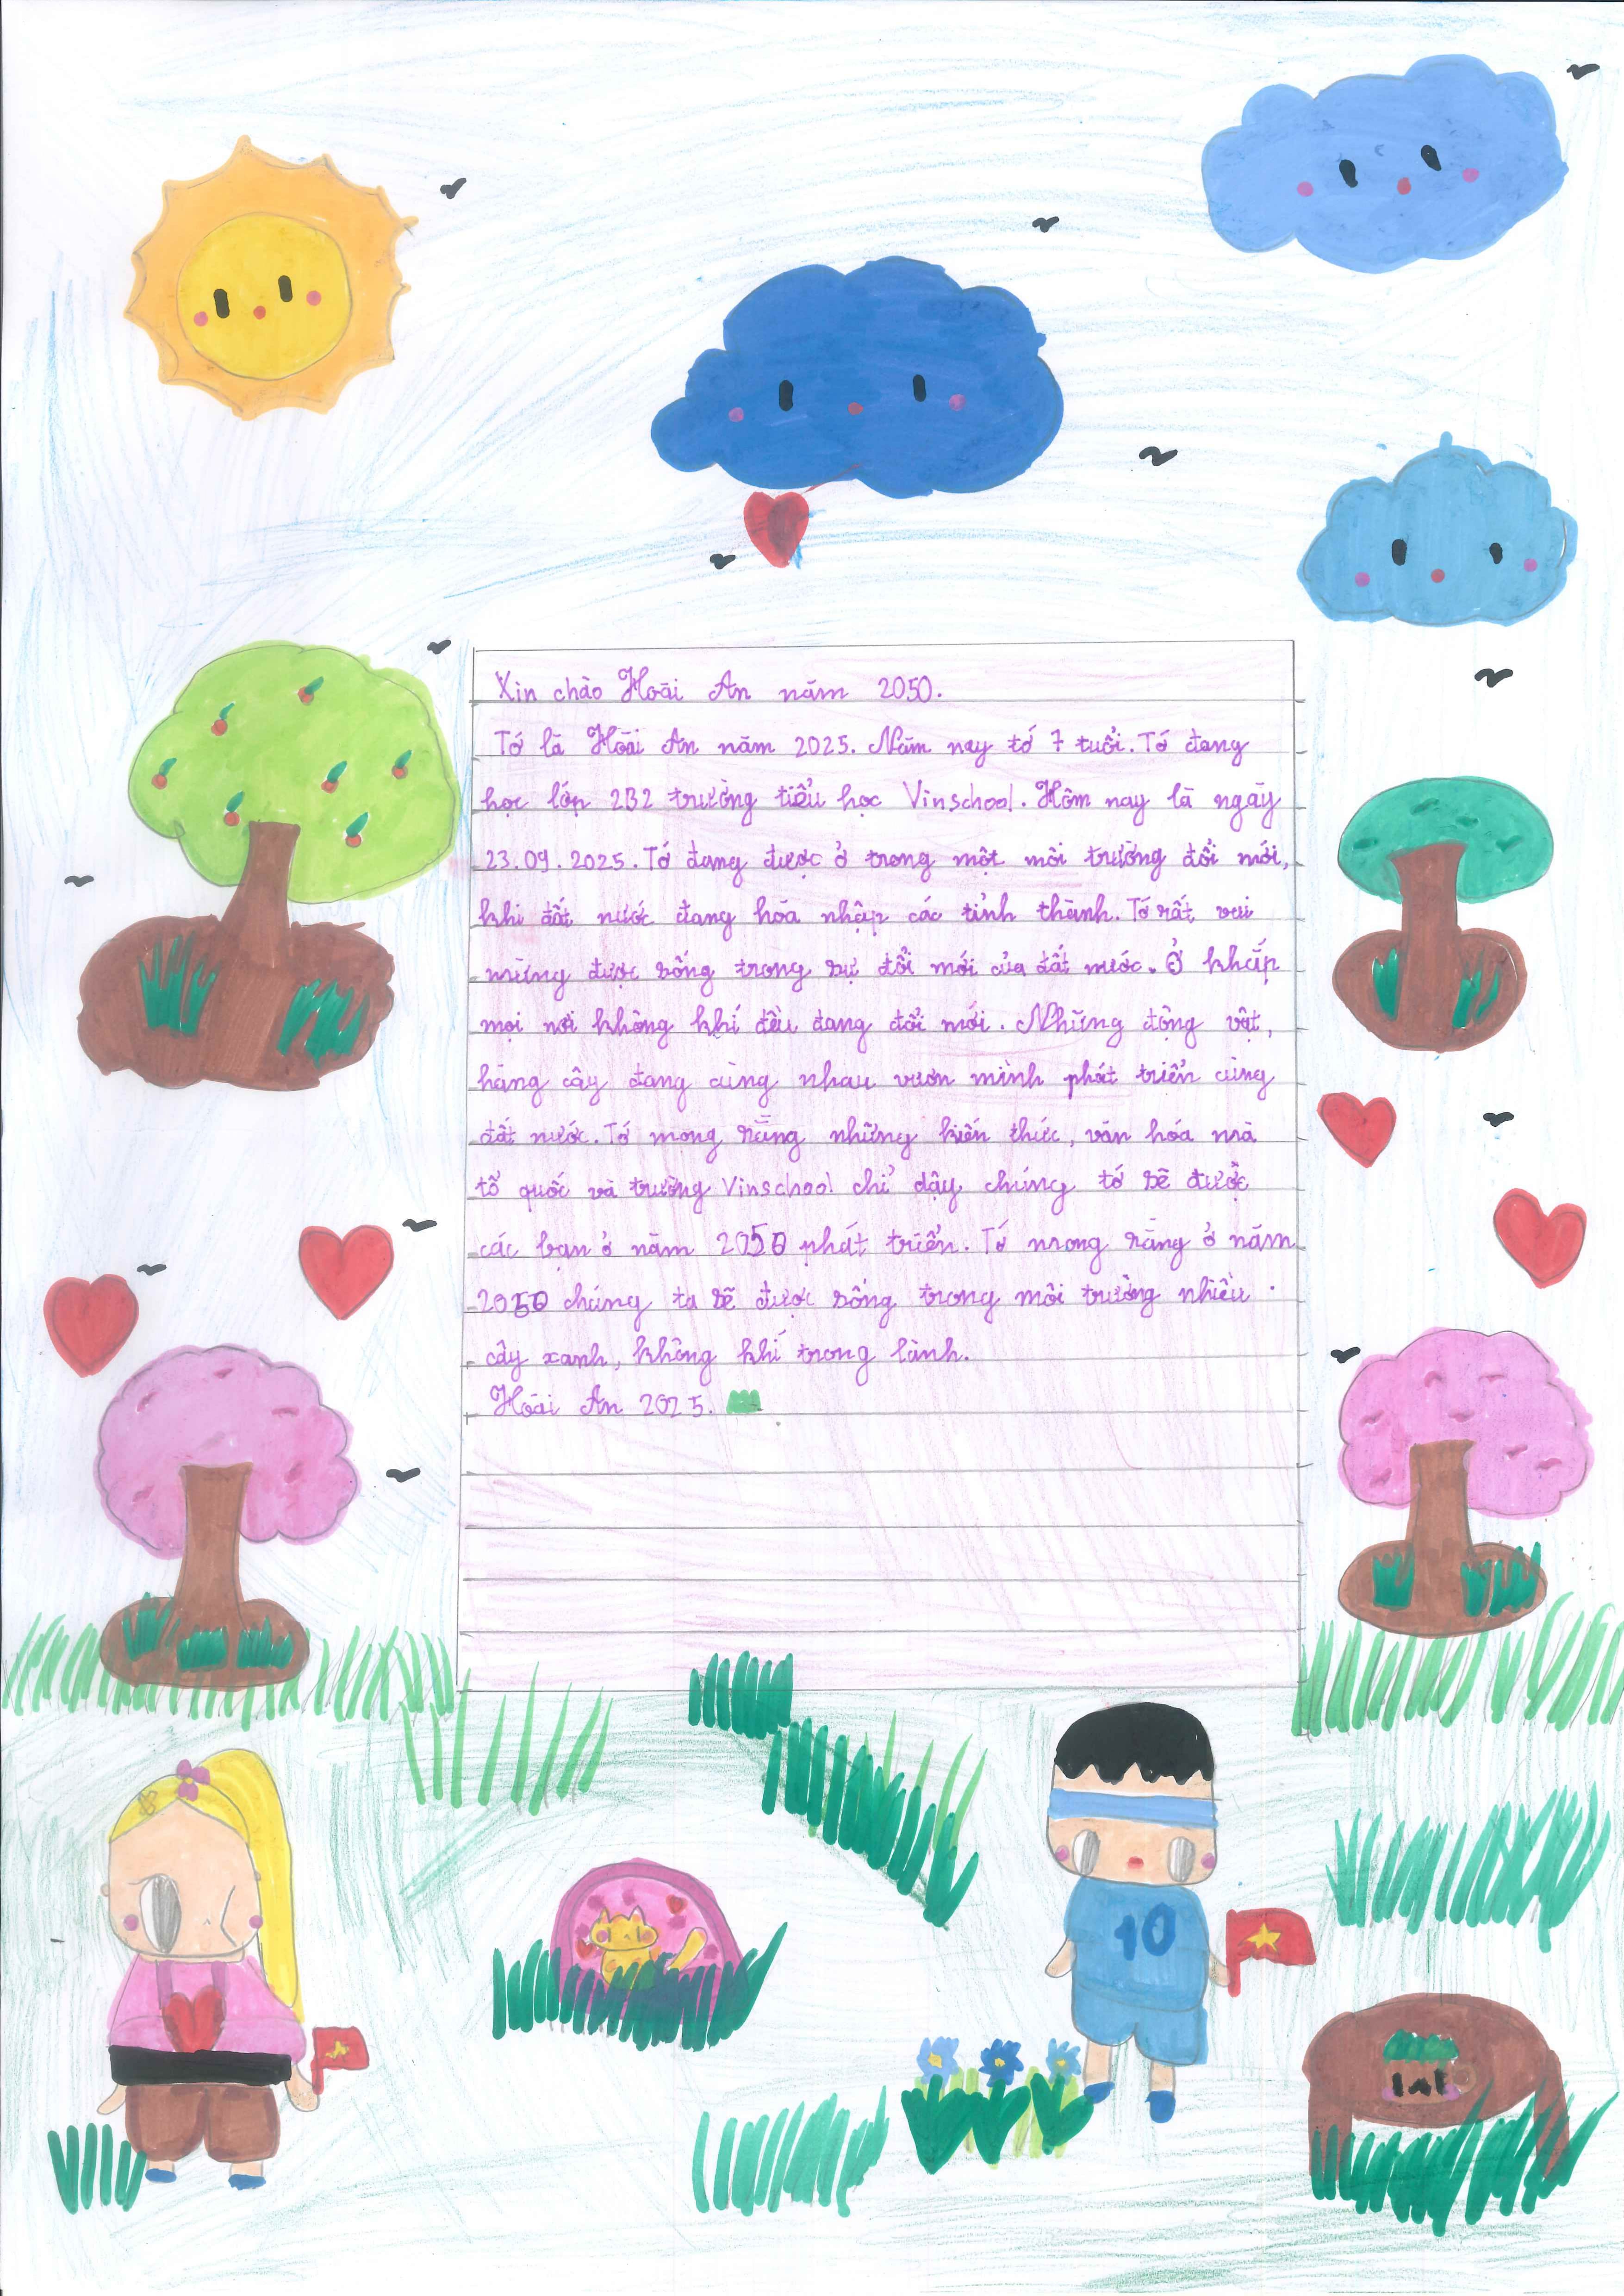 Xin chào Hoài An năm 2050.
Tớ là Hoài An năm 2025. Năm nay tớ 7 tuổi. Tớ đang
học lớp 2B2 trường tiểu học Vinschool. Hôm nay là ngày
23.09.2025. Tớ đang được ở trong một môi trường đổi mới,
khi đất nước đang hóa nhập các tỉnh thành. Tớ rất vui
mừng được sống trong sự đổi mới của đất nước. Ở khắp
mọi nơi không khí đều đang đổi mới. Những động vật,
hàng cây đang cùng nhau vươn mình phát triển cùng
đất nước. Tớ mong rằng những kiến thức, văn hóa mà
tổ quốc và trường Vinschool chỉ dậy chúng tớ sẽ được
các bạn ở năm 2050 phát triển. Tớ mong rằng ở năm
2050 chúng ta sẽ được sống trong môi trường nhiều
cây xanh, không khí trong lành.
Hoài An 2025.
10